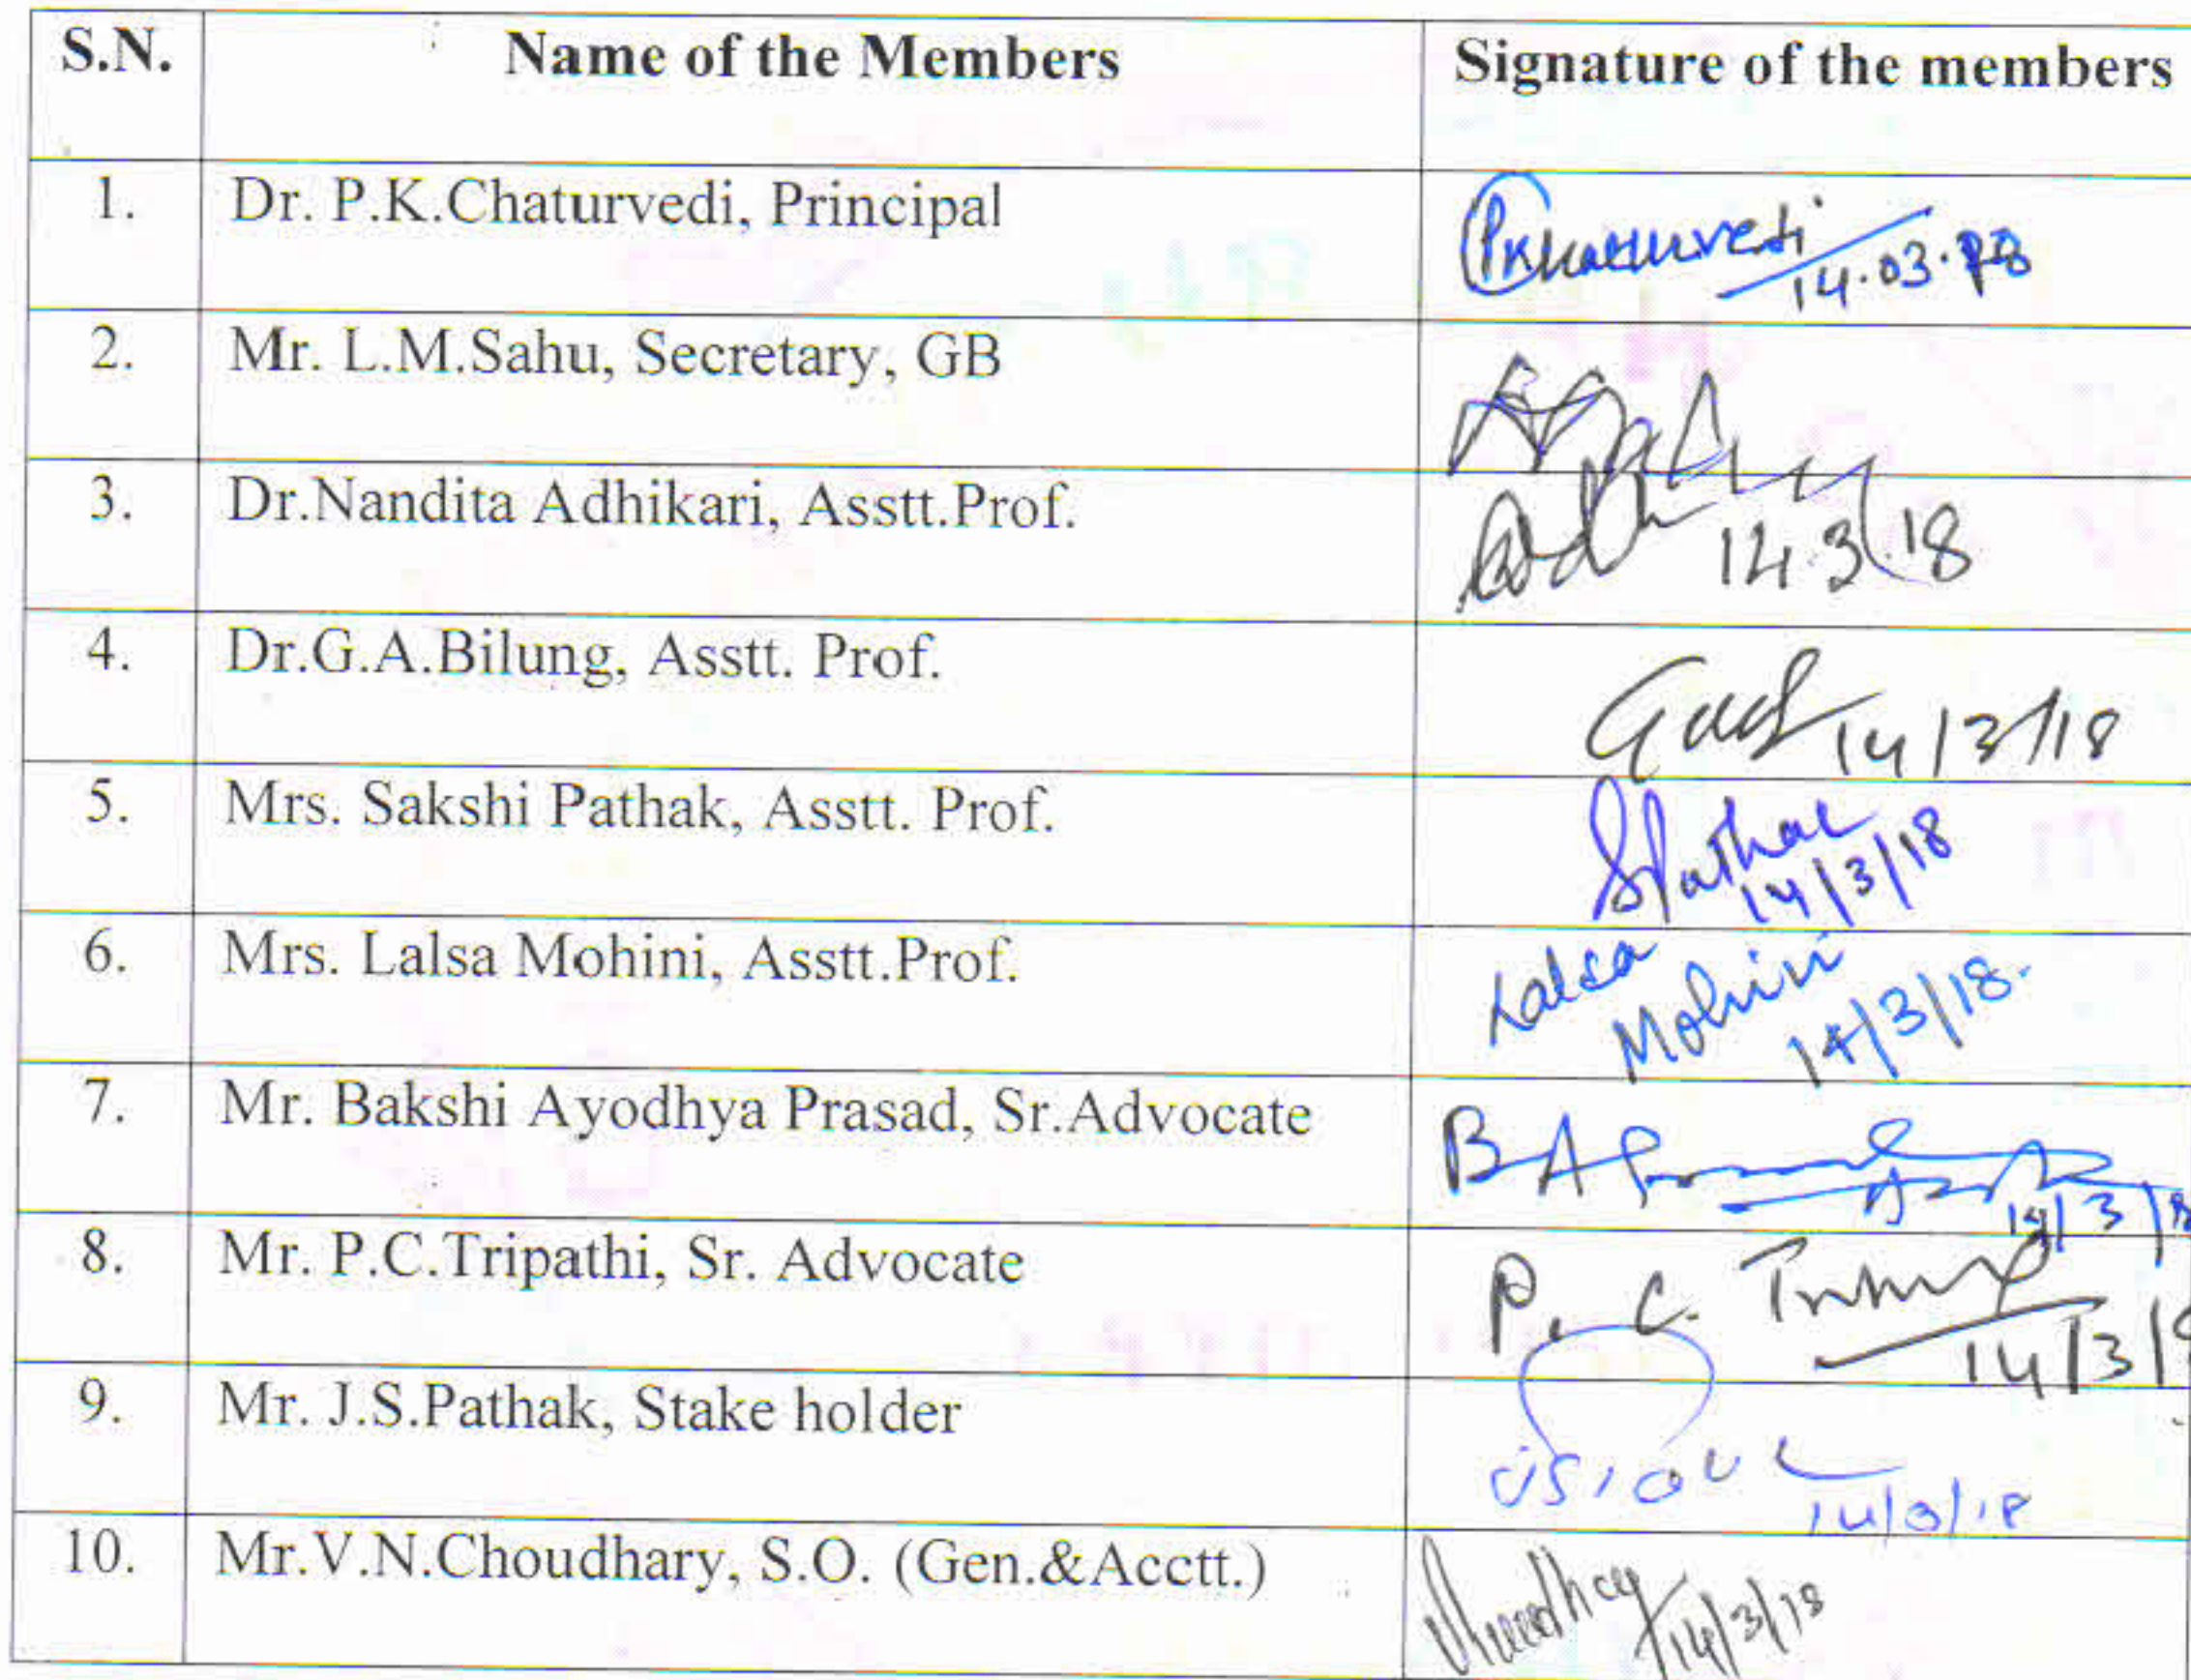 S.N. Name of the Members Signature of the members
1. Dr. P.K.Chaturvedi, Principal PKChaturvedi
14.03.18
2. Mr. L.M.Sahu, Secretary, GB
3. Dr.Nandita Adhikari, Asstt.Prof. 14.3.18
4. Dr.G.A.Bilung, Asstt. Prof. 14/3/18
5. Mrs. Sakshi Pathak, Asstt. Prof. SPathak
14/3/18
6. Mrs. Lalsa Mohini, Asstt.Prof. Lalsa
Mohini
14/3/18.
7. Mr. Bakshi Ayodhya Prasad, Sr.Advocate B A
14/3/18
8. Mr. P.C.Tripathi, Sr. Advocate P. C.
14/3/
9. Mr. J.S.Pathak, Stake holder
14/3/18
10. Mr.V.N.Choudhary, S.O. (Gen.&Acctt.)
14/3/18